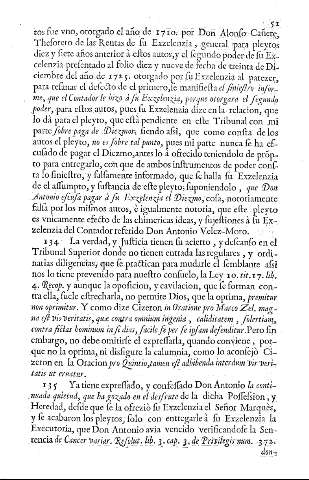 51
tos fue vno, otorgado el año de 1710. por Don Alonso Cañete,
Thesorero de las Rentas de su Exzelenzia, general para pleytos
diez y siete años anterior à estos autos, y el segundo poder de su Ex-
celenzia presentado al folio diez y nueve de fecha de treinta de Di-
ciembre del año de 1725. otorgado por su Exzelenzia al parezer,
para resanar el defecto de el primero, le manifiesta el siniestro infor-
me, que el Contador le hizo à su Exzelenzia, porque otorgare el segundo
poder, para estos autos, pues su Exzelenzia dize en la relacion, que
lo dà para el pleyto, que està pendiente en este Tribunal con mi
parte sobre paga de Diezmos, siendo assi, que como consta de los
autos el pleyto, no es sobre tal punto, pues mi parte nunca se ha es-
cusado de pagar el Diezmo, antes lo à ofrecido teniendolo de promp-
to para entregarlo, con que de ambos instrumentos de poder cons-
ta lo siniestro, y falsamente informado, que se halla su Exzelenzia
de el assumpto, y sustancia de este pleyto; suponiendolo, que Don
Antonio escusa pagar à su Exzelenzia el Diezmo, cosa, notoriamente
falsa por los mismos autos, è igualmente notoria, que este pleyto
es vnicamente efecto de las chimericas ideas, y suxestiones à su Ex-
zelenzia del Contador referido Don Antonio Velez-Moro.
134 La verdad, y Justicia tienen su acierto, y descanso en el
Tribunal Superior donde no tienen entrada las regulares, y ordi-
natias diligencias, que se practican para mudarle el semblante assi
nos lo tiene prevenido para nuestro consuelo, la Ley 10. tit. 17. lib.
4. Recop. y aunque la oposicion, y cavilacion, que se forman con-
tra ella, suele estrecharla, no permite Dios, que la oprima, premitur
non oprimitur. Y como dize Cizeron in Oratione pro Marco Zel. mag-
na est vis veritatis, quæ contra omnium ingenia, caliditatem, solertiam,
contra fictas hominum insidies, facile se per se ipsam defenditur. Pero sin
embargo, no debe omitirse el expressarla, quando conviene, por-
que no la oprima, ni disfigure la calumnia, como lo aconsejò Ci-
zeron en la Oracion pro Quintio, tamen est adhibenda interdum vis veri-
tatis ut eruatur.
135 Ya tiene expressado, y confessado Don Antonio la conti-
nuada quietud, que ha gozado en el desfrute de la dicha Possession, y
Heredad, desde que se la ofreziò su Exzelenzia el Señor Marquès,
y se acabaron los pleytos, solo con entregarle à su Exzelenzia la
Executoria, que Don Antonio avia vencido verificandose la Sen-
tencia de Cancer variar. Resolut. lib. 3. cap. 3. de Privilegis num. 372.
don-